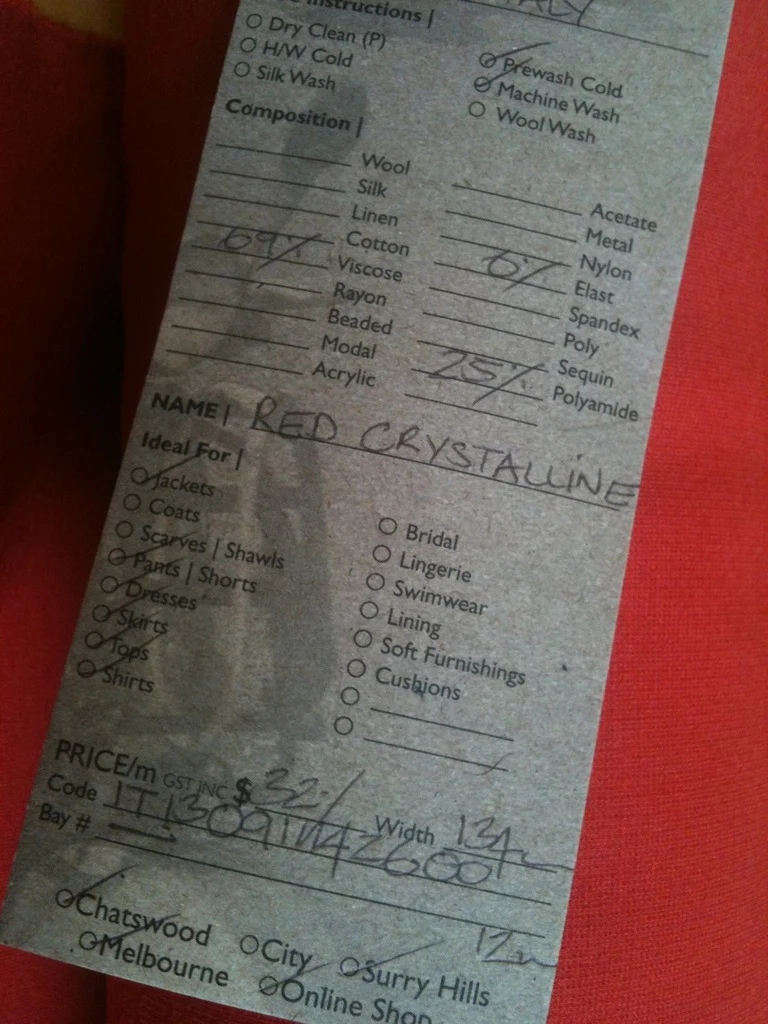 ALY
Instructions |
Dry Clean (P)
H/W Cold
Silk Wash
Prewash Cold
Machine Wash
Wool Wash
Composition |
Wool
Silk
Linen
Cotton
69% Viscose
Rayon
Beaded
Modal
Acrylic
Acetate
Metal
Nylon
6% Elast
Spandex
Poly
Sequin
25% Polyamide
NAME | RED CRYSTALLINE
Ideal For |
Jackets
Coats
Scarves | Shawls
Pants | Shorts
Dresses
Skirts
Tops
Shirts
Bridal
Lingerie
Swimwear
Lining
Soft Furnishings
Cushions
PRICE/m GST INC $ 32.- Width 134
Code
Bay #
12m
Chatswood City Surry Hills
Melbourne Online Shop